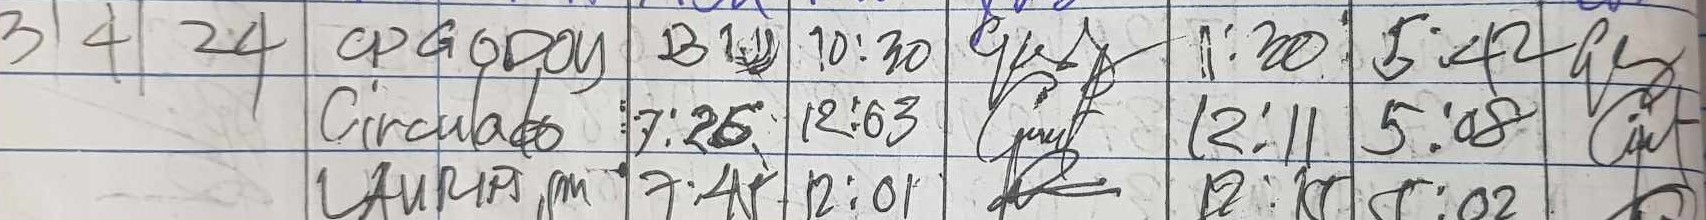 3 4 24 CP GODOY 10:30 1:30 5:42
Circulado 7:25 12:03 12:11 5:08
LAURIA, m 7:45 12:01 12:15 5:02